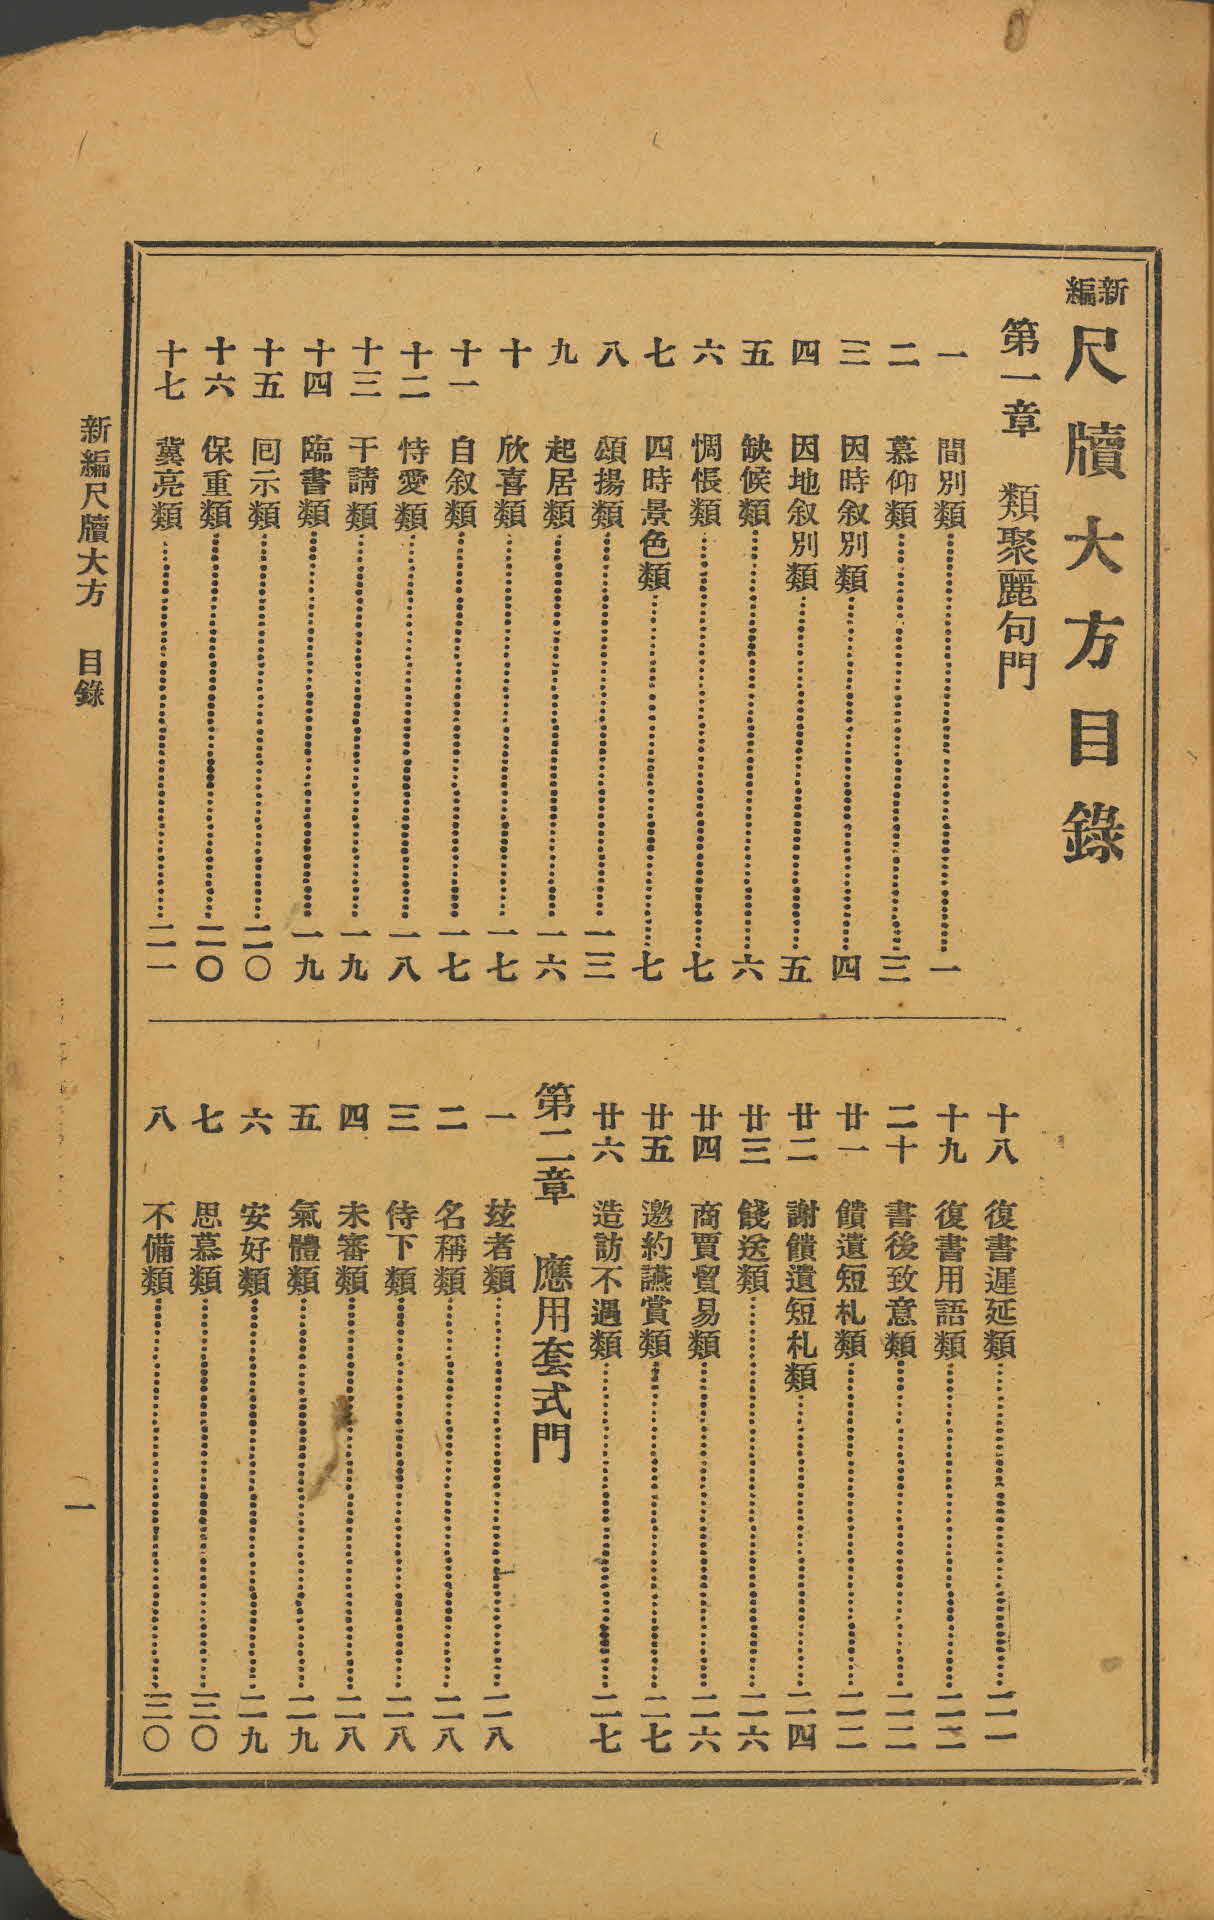 新編尺牘大方目錄
第一章　類聚麗句門
一　間別類……一
二　慕仰類……三
三　因時叙別類……四
四　因地叙別類……五
五　缺候類……六
六　惆悵類……七
七　四時景色類……七
八　頌揚類……一三
九　起居類……一六
十　欣喜類……一七
十一　自叙類……一七
十二　恃愛類……一八
十三　干請類……一九
十四　臨書類……一九
十五　囘示類……二〇
十六　保重類……二〇
十七　冀亮類……二一
十八　復書遲延類……二一
十九　復書用語類……二二
二十　書後致意類……二二
廿一　饋遺短札類……二二
廿二　謝饋遺短札類……二四
廿三　餞送類……二六
廿四　商賈貿易類……二六
廿五　邀約讌賞類……二七
廿六　造訪不遇類……二七
第二章　應用套式門
一　玆者類……二八
二　名稱類……二八
三　侍下類……二八
四　未審類……二八
五　氣體類……二九
六　安好類……二九
七　思慕類……三〇
八　不備類……三〇
新編尺牘大方　目錄
一